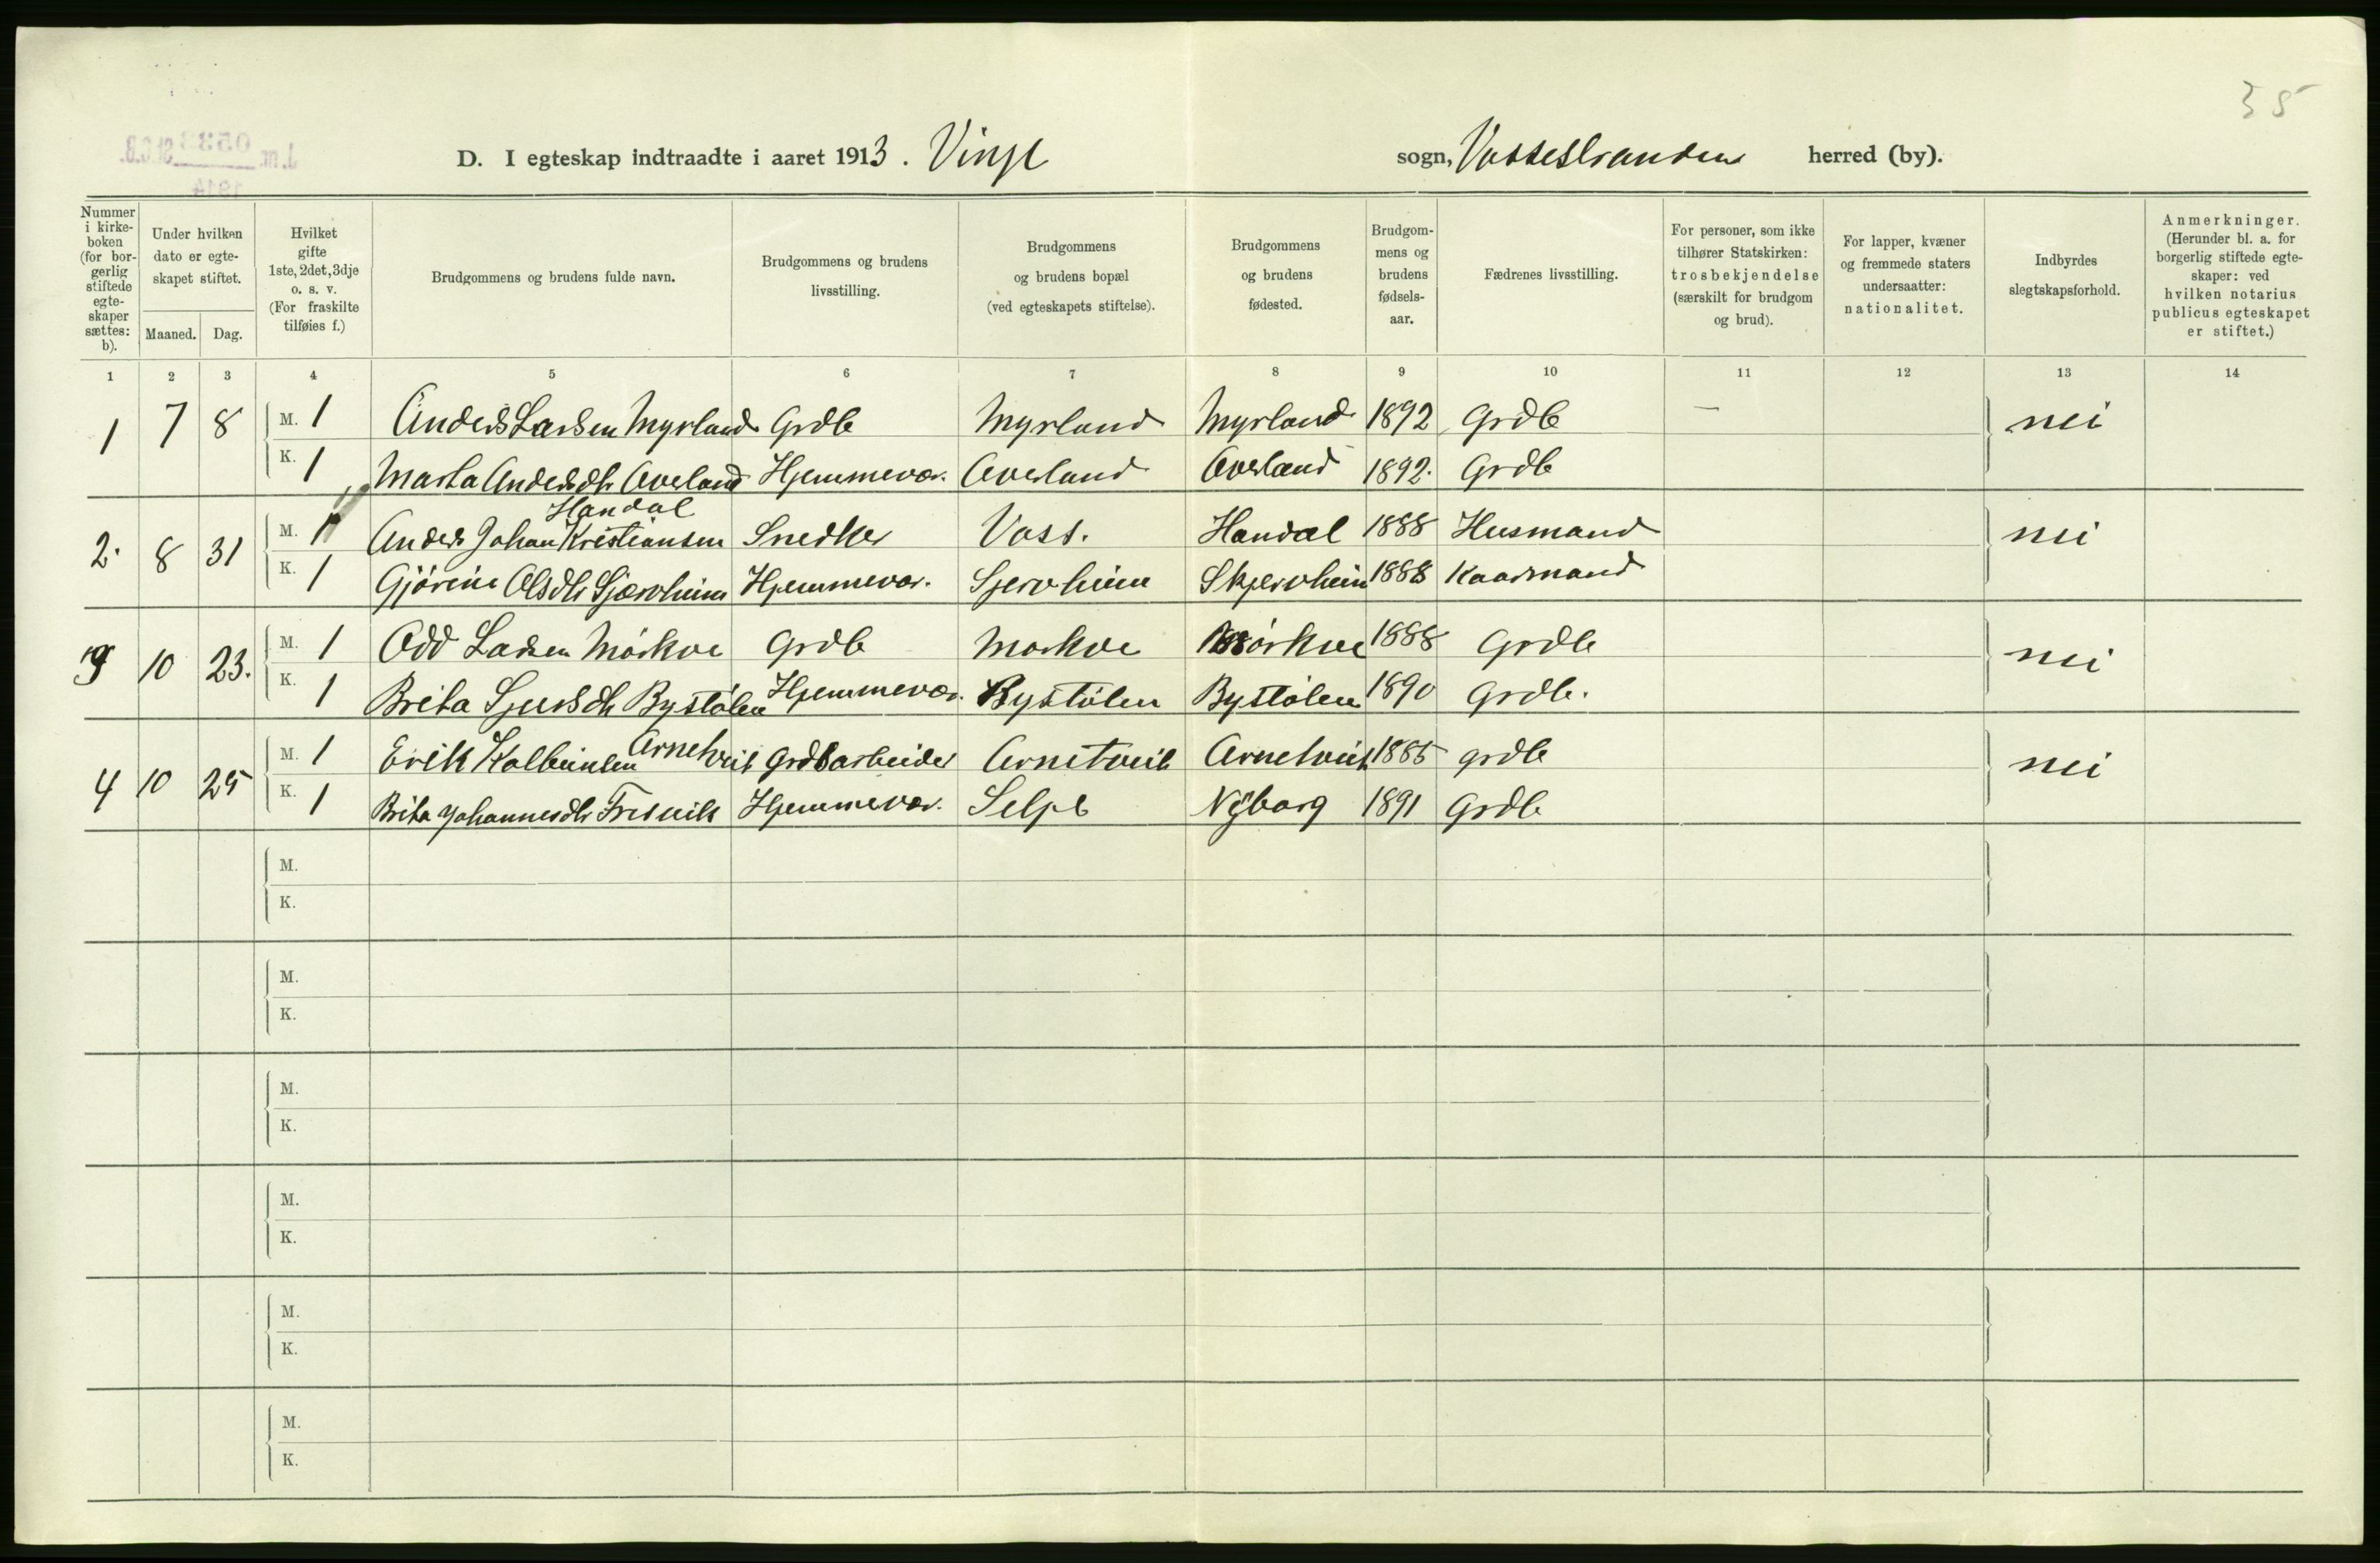 35
D. I egteskap indtraadte i aaret 1913. Vinje sogn, Vossestranden herred (by).
Nummer i kirkeboken (for borgerlig stiftede egteskaper sættes: b).
Under hvilken dato er egteskapet stiftet.
Maaned. Dag.
Hvilket gifte 1ste, 2det, 3dje o. s. v. (For fraskilte tilføies f.)
Brudgommens og brudens fulde navn.
Brudgommens og brudens livsstilling.
Brudgommens og brudens bopæl (ved egteskapets stiftelse).
Brudgommens og brudens fødested.
Brudgommens og brudens fødselsaar.
Fædrenes livsstilling.
For personer, som ikke tilhører Statskirken: trosbekjendelse (særskilt for brudgom og brud).
For lapper, kvæner og fremmede staters undersaatter: nationalitet.
Indbyrdes slegtskapsforhold.
Anmerkninger. (Herunder bl. a. for borgerlig stiftede egteskaper: ved hvilken notarius publicus egteskapet er stiftet.)
1 2 3 4 5 6 7 8 9 10 11 12 13 14
1 7 8 M. 1 Anders Larsen Myrland Grdb Myrland Myrland 1892 Grdb — nei
K. 1 Marta Andersdtr Averland Hjemmevær. Overland Overland 1892. Grdb
Handal
2. 8 31 M. 1 Anders Johan Kristiansen Snedker Voss. Handal 1888 Husmand nei
K. 1 Gjörine Olsdtr Sjærvheim Hjemmevær. Sjervheim Skjervheim 1888 Kaarmand
3 10 23. M. 1 Odd Larsen Mörkve Grdb Morkve Mörkve 1888 Grdb nei
K. 1 Brita Sjursdtr Bystölen Hjemmevær. Bystölen Bystölen 1890 Grdb.
4 10 25 M. 1 Erik Kolbeinsen Arnetveit Grdbarbeider Arnetveit Arnetveit 1885 grdb nei
K. 1 Brita Johannesdtr Hjemmevær. Selje Nyborg 1891 Grdb
M.
K.
M.
K.
M.
K.
M.
K.
M.
K.
M.
K.